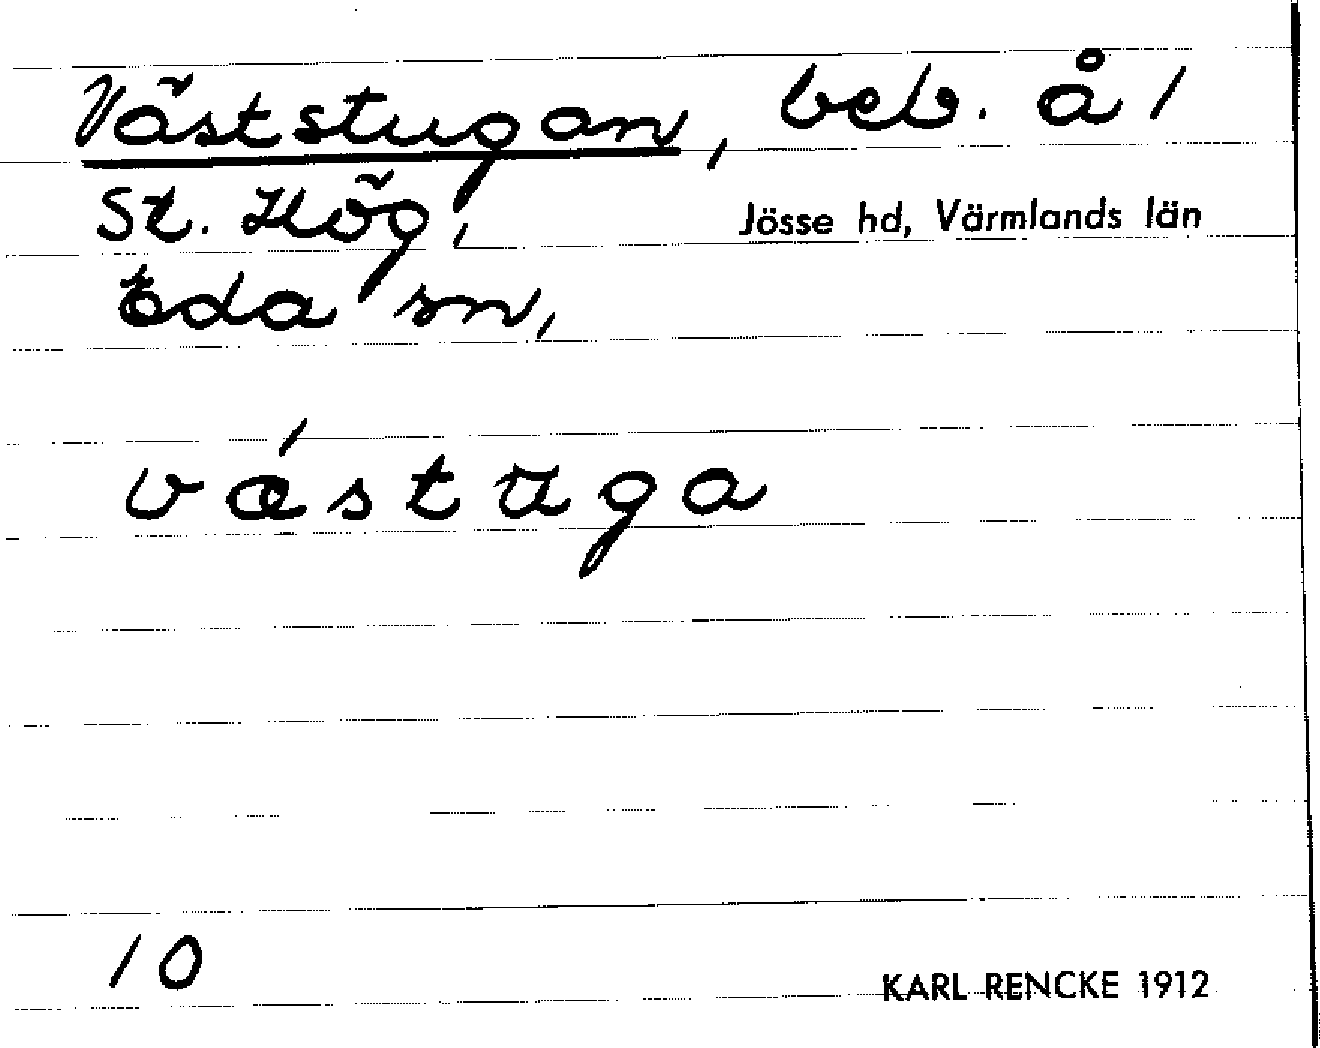 Väststugan, beb. å 1
St. Hög,
Jösse hd, Värmlands län
Eda sn,
vǽstuga
10
KARL RENCKE 1912